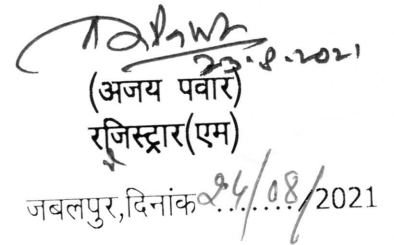 23-8-2021
(अजय पवार)
रजिस्ट्रार(एम)
जबलपुर,दिनांक 24/08/2021